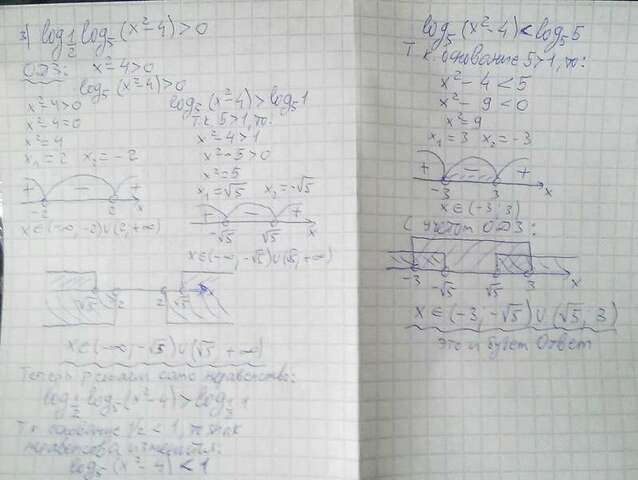 3) log½ log₅ (x²-4) > 0
ОДЗ: x²-4>0
log₅ (x²-4)>0
x²-4>0
x²-4=0
x²=4
x₁=2 x₂=-2
+ - +
-2 2 x
x∈(-∞, -2)∪(2, +∞)
log₅(x²-4)>log₅1
Т.к 5>1, то:
x²-4>1
x²-5>0
x²=5
x₁=√5 x₂=-√5
+ - +
-√5 √5 x
x∈(-∞, -√5)∪(√5, +∞)
√5 -2 2 √5 x
x∈(-∞, -√5)∪(√5, +∞)
Теперь решаем само неравенство:
log½ log₅(x²-4)>log½ 1
Т к основание ½ < 1, то знак
неравенства изменится:
log₅ (x²-4) < 1
log₅ (x²-4) < log₅5
Т к. основание 5>1, то:
x² - 4 < 5
x² - 9 < 0
x²=9
x₁=3 x₂=-3
+ - +
-3 3 x
x∈(-3; 3)
С учётом ОДЗ:
-3 -√5 √5 3 x
x∈(-3, -√5)∪(√5; 3)
Это и будет Ответ